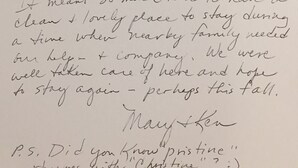 clean & lovely place to stay during
a time when nearby family needed
our help & company. We were
well taken care of here and hope
to stay again - perhaps this fall.
Mary & Ken
P.S. Did you know "pristine"